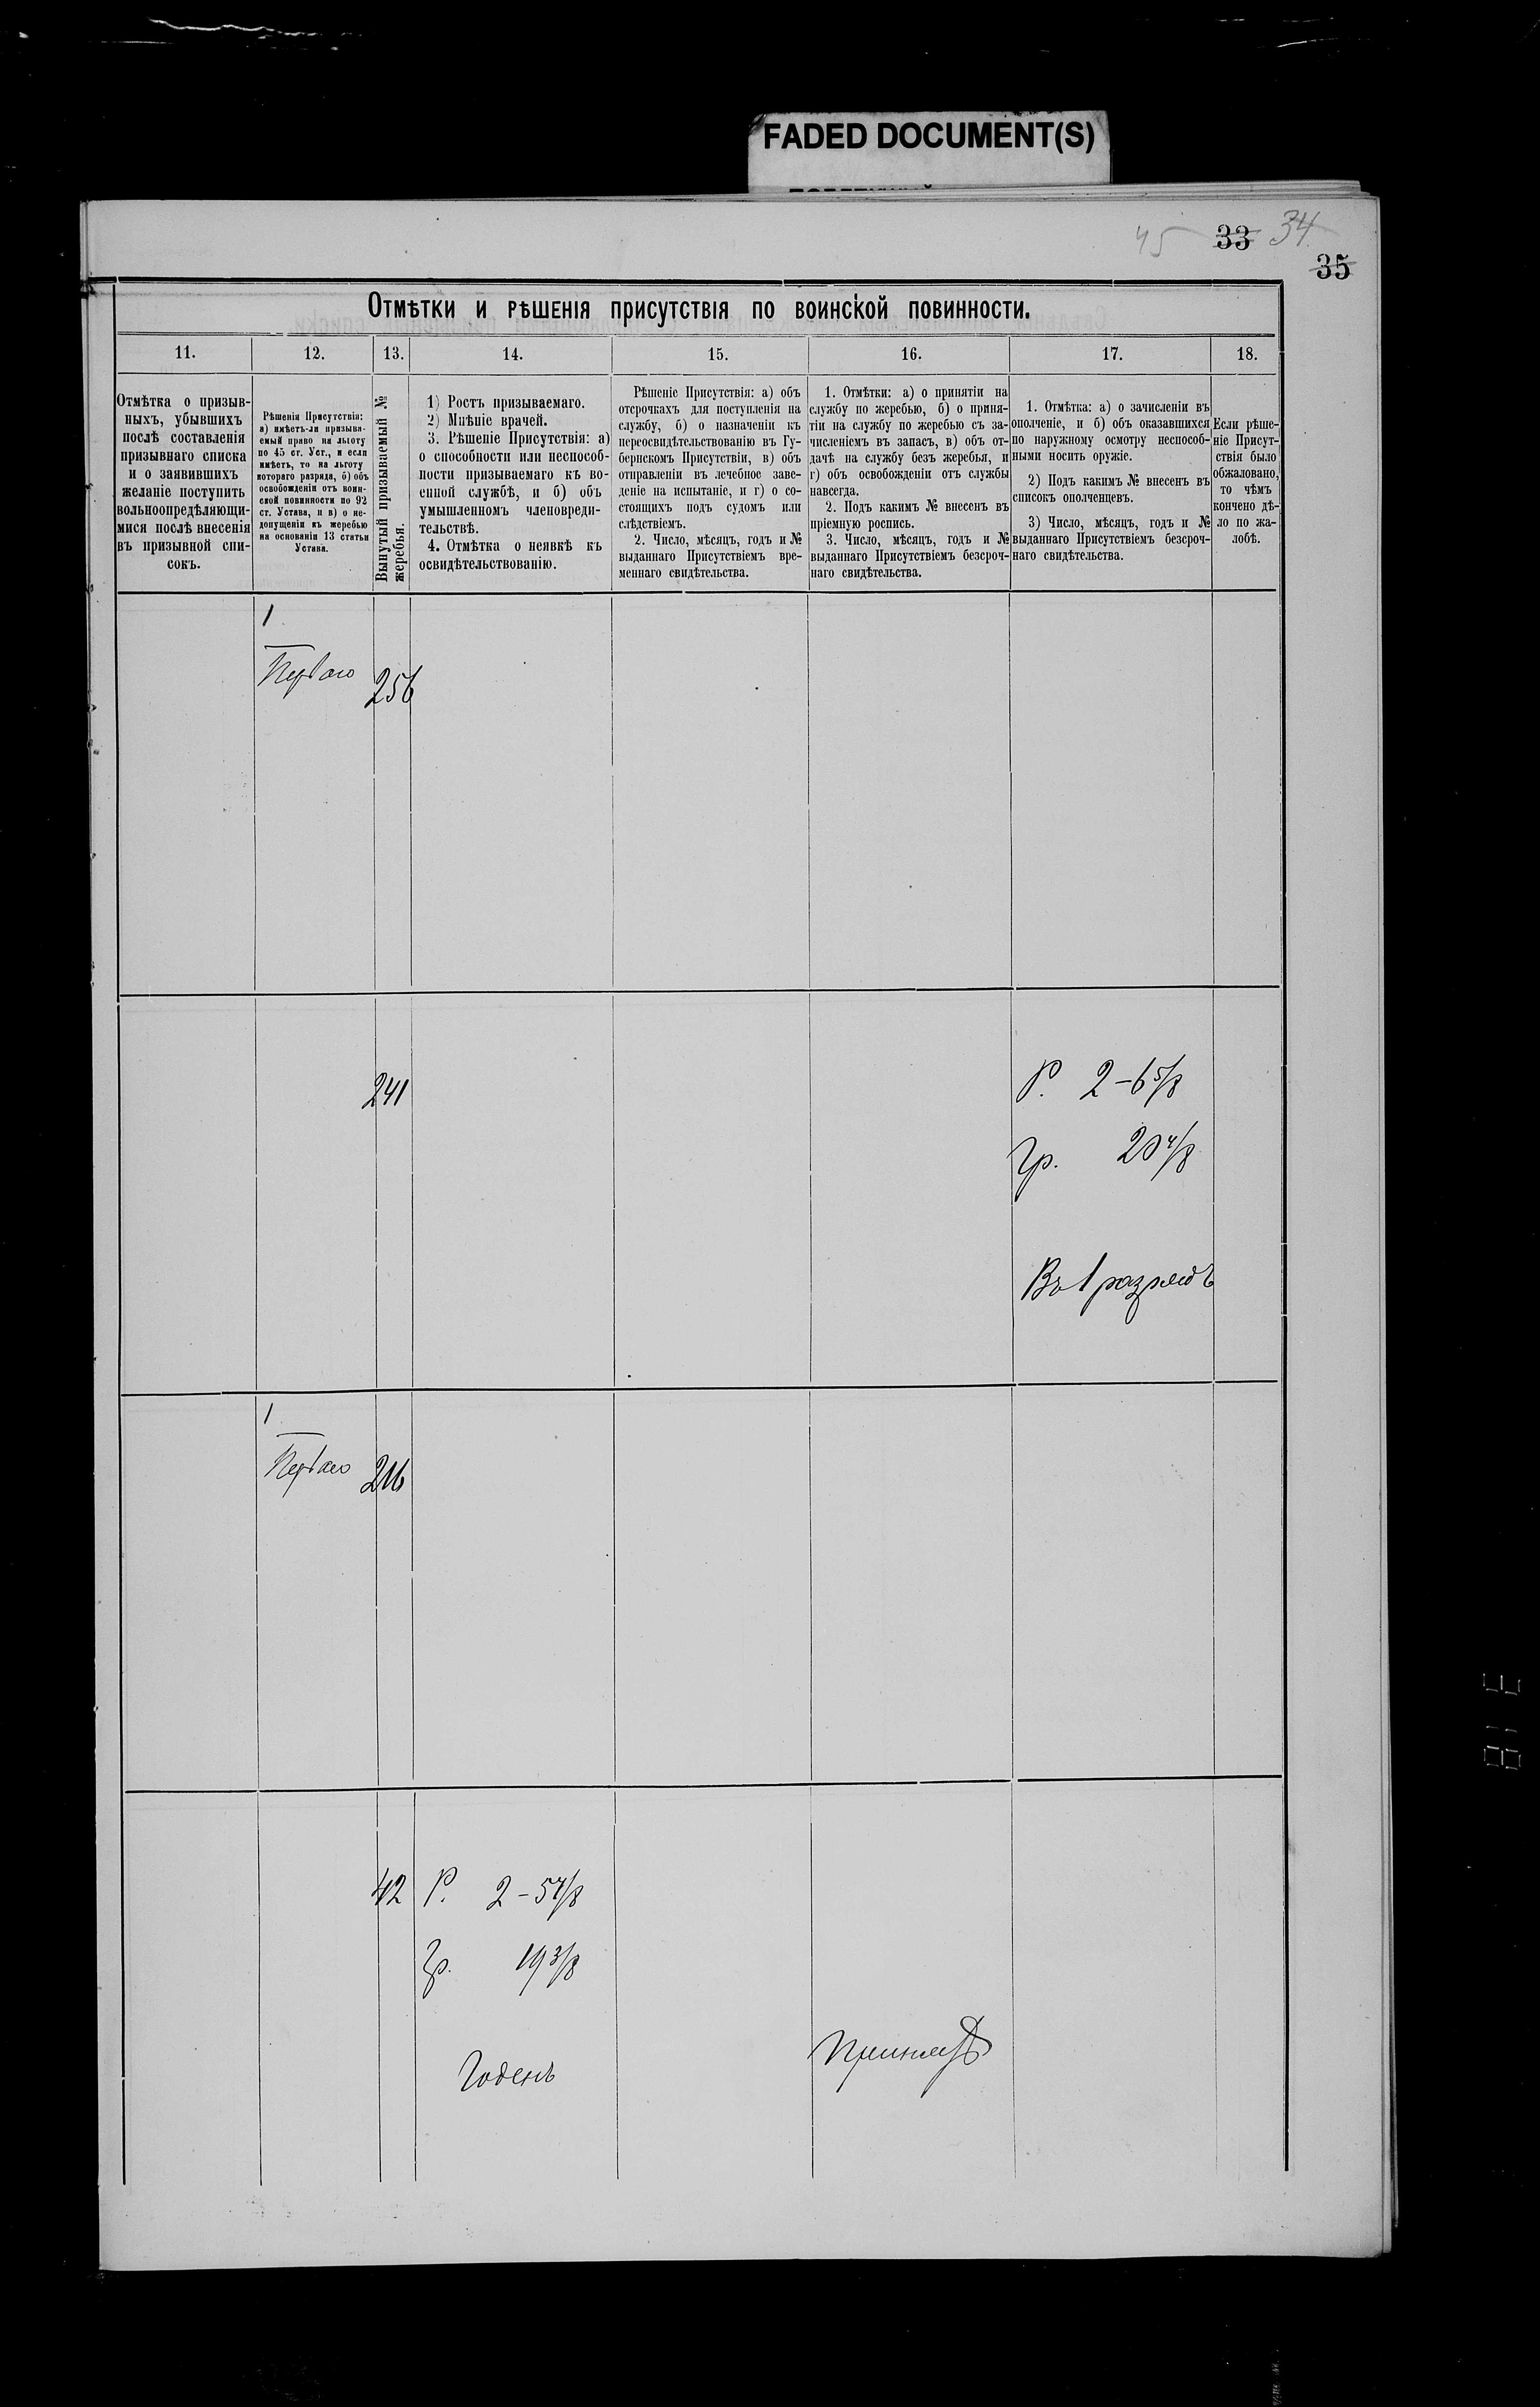 FADED DOCUMENT(S)
45 33 34
35
Отмѣтки и рѣшенія присутствія по воинской повинности.
11. 12. 13. 14. 15. 16. 17. 18.
Отмѣтка о призыв-
ныхъ, убывшихъ
послѣ составленія
призывнаго списка
и о заявившихъ
желаніе поступить
вольноопредѣляющи-
мися послѣ внесенія
въ призывной спи-
сокъ.
Рѣшенія Присутствія:
а) имѣетъ-ли призыва-
емый право на льготу
по 45 ст. Уст., и если
имѣетъ, то на льготу
котораго разряда, б) объ
освобожденіи отъ воин-
ской повинности по 92
ст. Устава, и в) о не-
допущеніи къ жеребью
на основаніи 13 статьи
Устава.
Вынутый призываемый №
жеребья.
1) Ростъ призываемаго.
2) Мнѣніе врачей.
3. Рѣшеніе Присутствія: а)
о способности или неспособ-
ности призываемаго къ во-
енной службѣ, и б) объ
умышленномъ членовреди-
тельствѣ.
4. Отмѣтка о неявкѣ къ
освидѣтельствованію.
Рѣшеніе Присутствія: а) объ
отсрочкахъ для поступленія на
службу, б) о назначеніи къ
переосвидѣтельствованію въ Гу-
бернскомъ Присутствіи, в) объ
отправленіи въ лечебное заве-
деніе на испытаніе, и г) о со-
стоящихъ подъ судомъ или
слѣдствіемъ.
2. Число, мѣсяцъ, годъ и №
выданнаго Присутствіемъ вре-
меннаго свидѣтельства.
1. Отмѣтки: а) о принятіи на
службу по жеребью, б) о приня-
тіи на службу по жеребью съ за-
численіемъ въ запасъ, в) объ от-
дачѣ на службу безъ жеребья, и
г) объ освобожденіи отъ службы
навсегда.
2. Подъ какимъ № внесенъ въ
пріемную роспись.
3. Число, мѣсяцъ, годъ и №
выданнаго Присутствіемъ безсроч-
наго свидѣтельства.
1. Отмѣтка: а) о зачисленіи въ
ополченіе, и б) объ оказавшихся
по наружному осмотру неспособ-
ными носить оружіе.
2) Подъ какимъ № внесенъ въ
списокъ ополченцевъ.
3) Число, мѣсяцъ, годъ и №
выданнаго Присутствіемъ безсроч-
наго свидѣтельства.
Если рѣше-
ніе Присут-
ствія было
обжаловано,
то чѣмъ
кончено дѣ-
ло по жа-
лобѣ.
1
Перваго 256
241 Р. 2-6 5/8
Гр. 20 4/8
Въ 1 разрядъ
1
Перваго 216
42 Р. 2-5 7/8
Гр. 19 3/8
Годенъ Принятъ